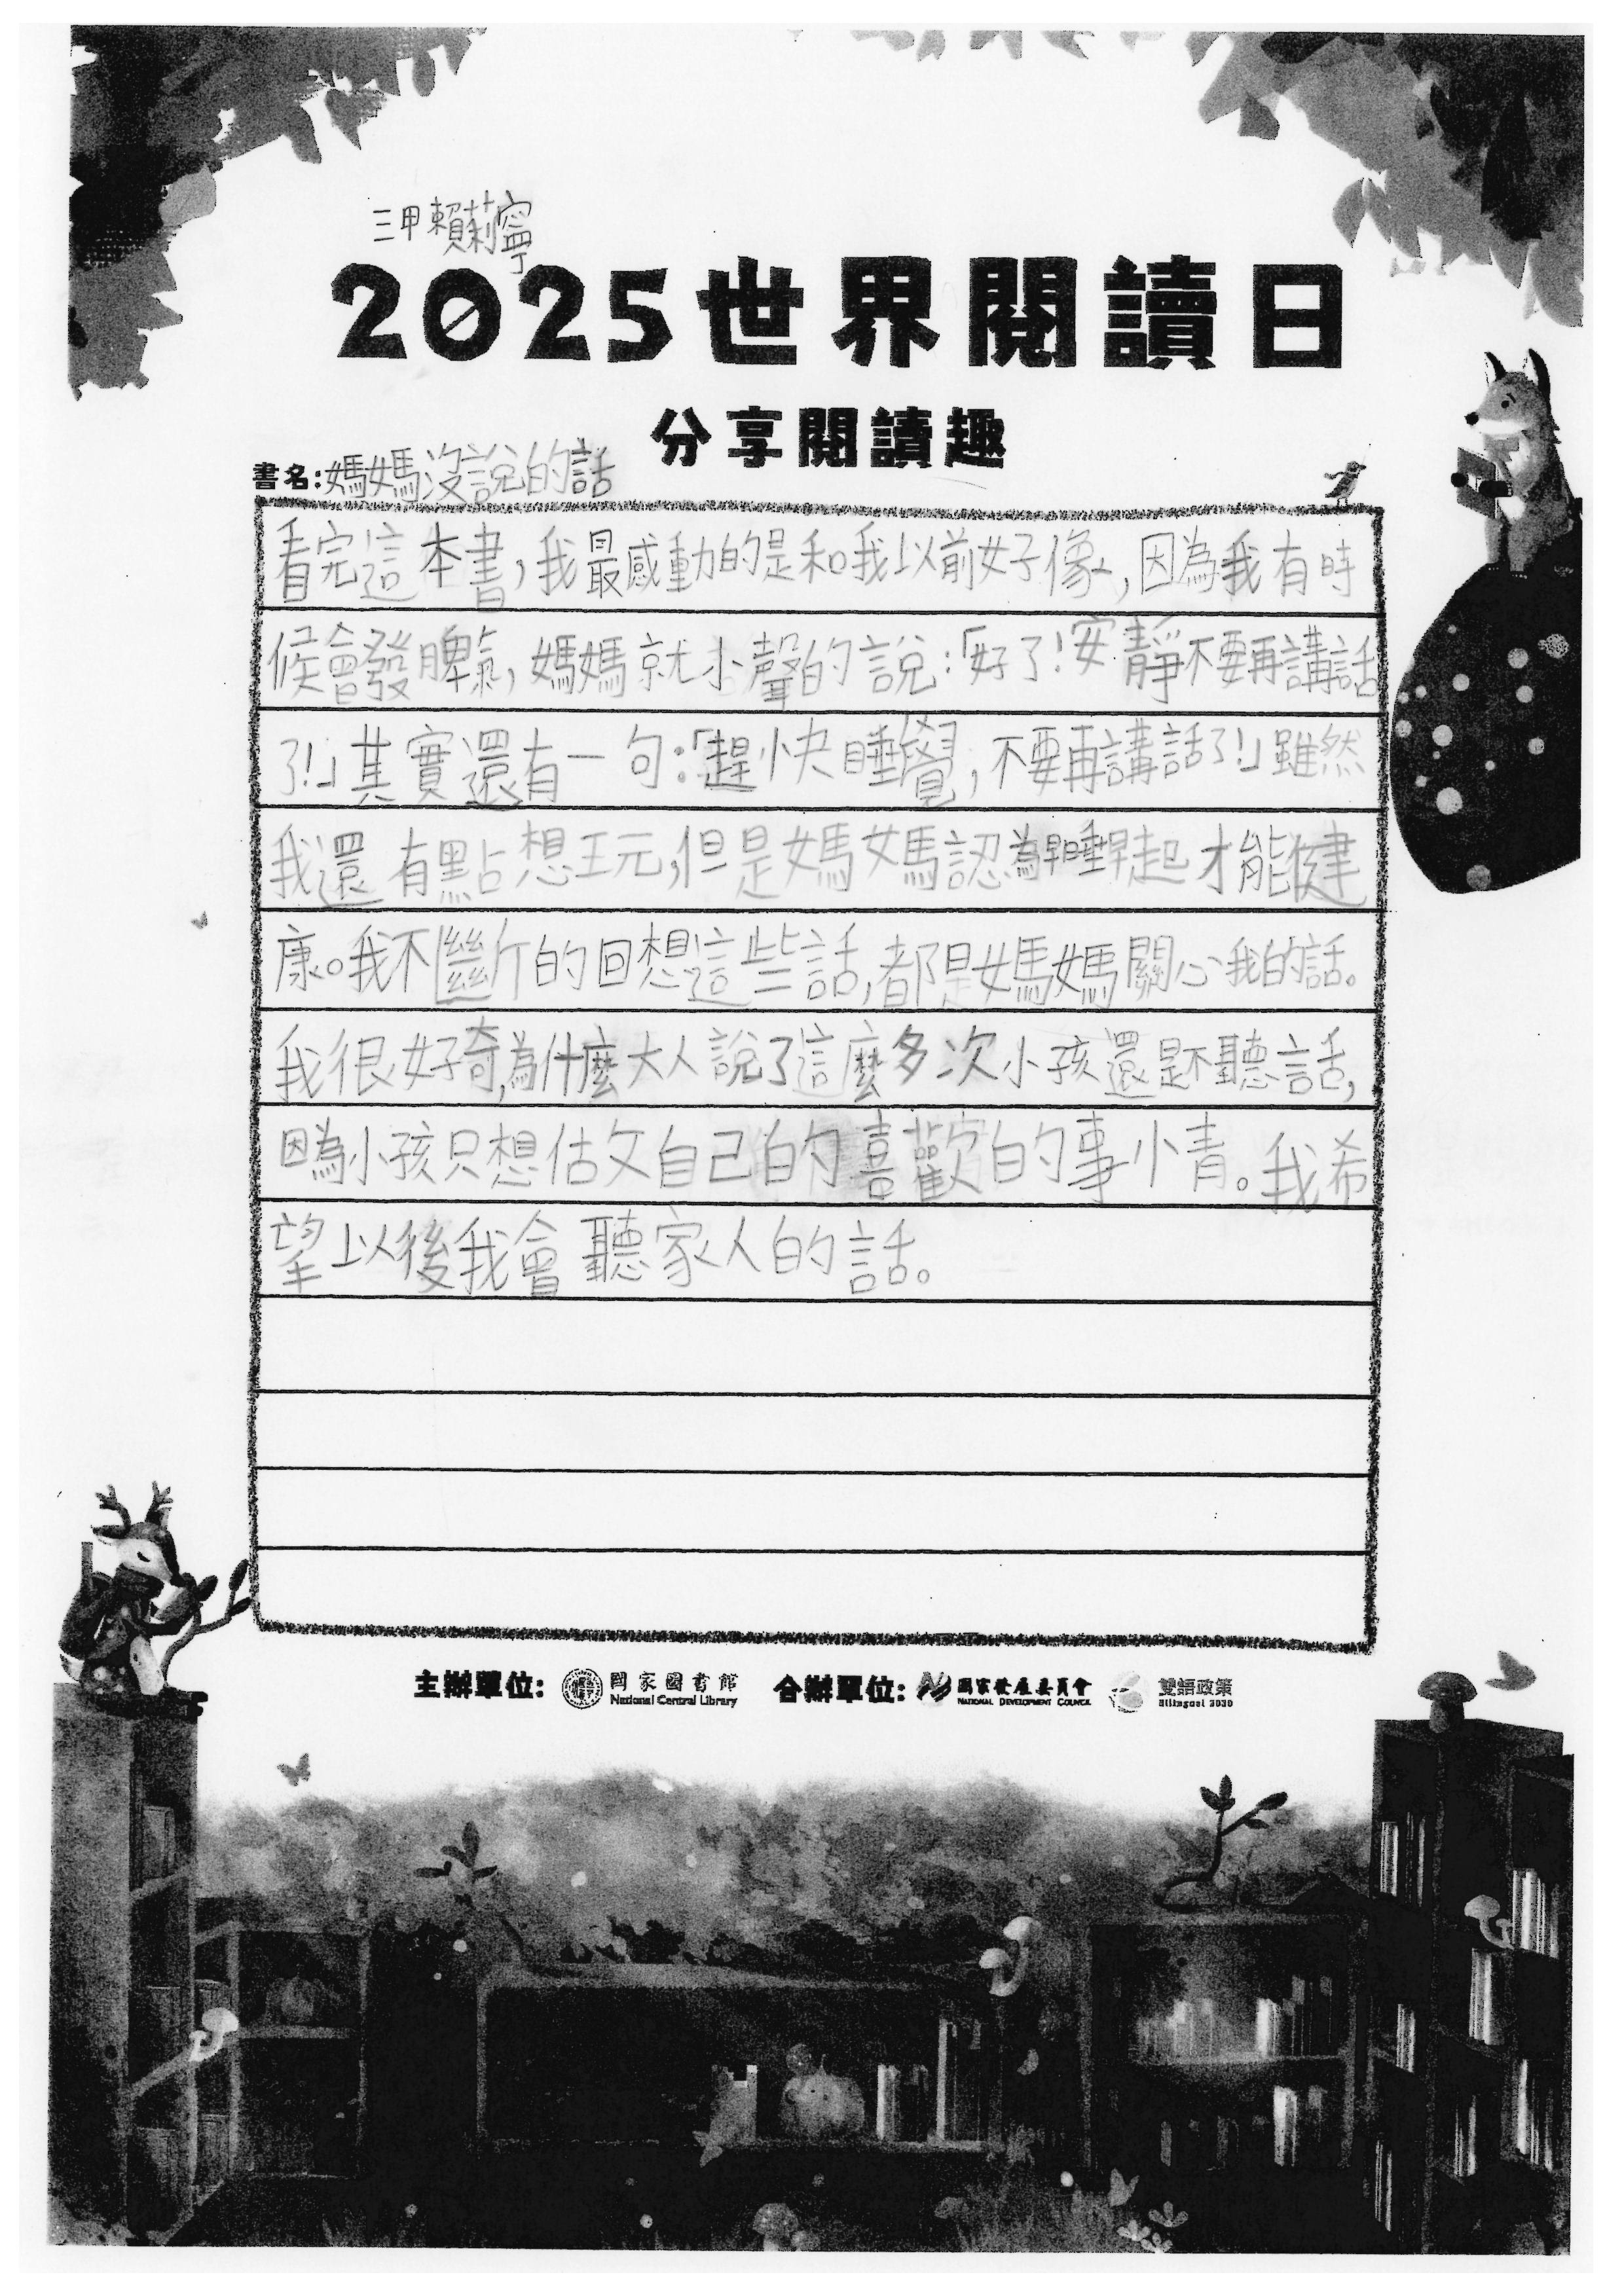 三甲賴莉寧
2025世界閱讀日
分享閱讀趣
書名:媽媽沒說的話
看完這本書,我最感動的是和我以前好像,因為我有時
候會發脾氣,媽媽就小聲的說:「好了!安靜不要再講話
了!」其實還有一句:「趕快睡覺,不要再講話了!」雖然
我還有點想玩,但是媽媽認為早睡早起才能健
康。我不斷的回想這些話,都是媽媽關心我的話。
我很好奇,為什麼大人說了這麼多次小孩還是不聽話,
因為小孩只想做自己的喜歡的事情。我希
望以後我會聽家人的話。
主辦單位: 國家圖書館 National Central Library 合辦單位: 國家發展委員會 NATIONAL DEVELOPMENT COUNCIL 雙語政策 Bilingual 2030